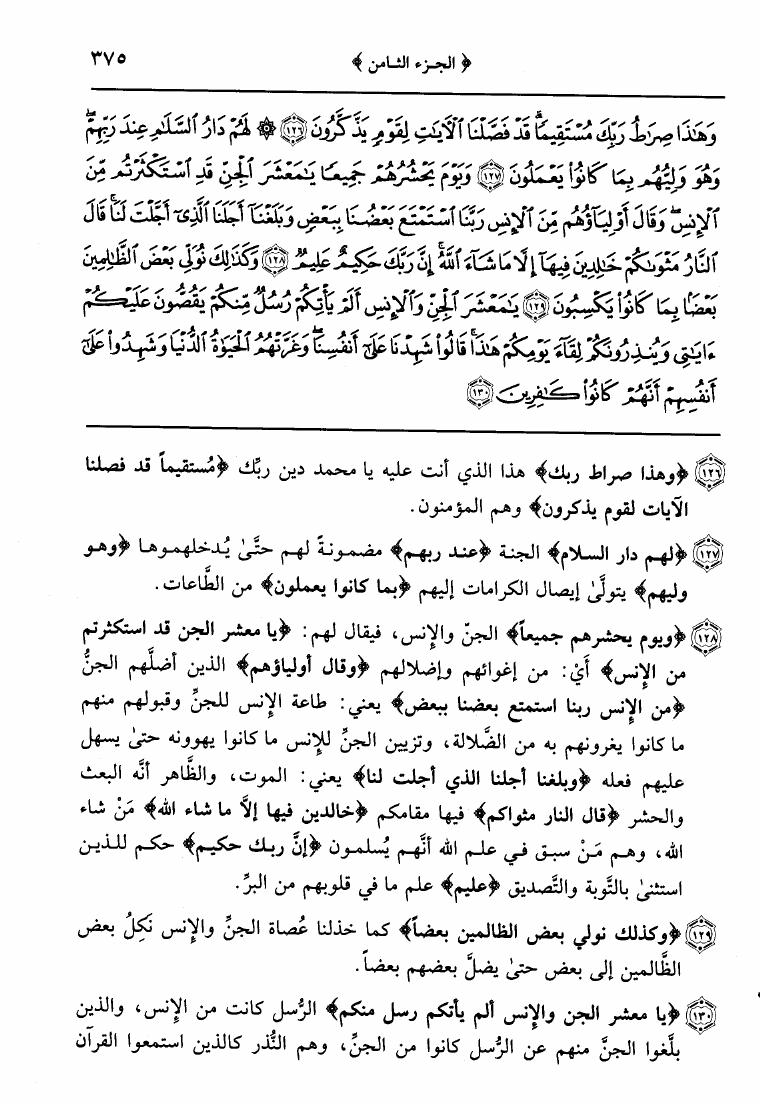 ﴿ الجزء الثامن ﴾ ٣٧٥
وَهَٰذَا صِرَٰطُ رَبِّكَ مُسْتَقِيمًا ۗ قَدْ فَصَّلْنَا ٱلْءَايَٰتِ لِقَوْمٍ يَذَّكَّرُونَ ١٢٦ ۞ لَهُمْ دَارُ ٱلسَّلَٰمِ عِندَ رَبِّهِمْ ۖ
وَهُوَ وَلِيُّهُم بِمَا كَانُوا۟ يَعْمَلُونَ ١٢٧ وَيَوْمَ يَحْشُرُهُمْ جَمِيعًا يَٰمَعْشَرَ ٱلْجِنِّ قَدِ ٱسْتَكْثَرْتُم مِّنَ
ٱلْإِنسِ ۖ وَقَالَ أَوْلِيَآؤُهُم مِّنَ ٱلْإِنسِ رَبَّنَا ٱسْتَمْتَعَ بَعْضُنَا بِبَعْضٍ وَبَلَغْنَآ أَجَلَنَا ٱلَّذِىٓ أَجَّلْتَ لَنَا ۚ قَالَ
ٱلنَّارُ مَثْوَىٰكُمْ خَٰلِدِينَ فِيهَآ إِلَّا مَا شَآءَ ٱللَّهُ ۗ إِنَّ رَبَّكَ حَكِيمٌ عَلِيمٌ ١٢٨ وَكَذَٰلِكَ نُوَلِّى بَعْضَ ٱلظَّٰلِمِينَ
بَعْضًۢا بِمَا كَانُوا۟ يَكْسِبُونَ ١٢٩ يَٰمَعْشَرَ ٱلْجِنِّ وَٱلْإِنسِ أَلَمْ يَأْتِكُمْ رُسُلٌ مِّنكُمْ يَقُصُّونَ عَلَيْكُمْ
ءَايَٰتِى وَيُنذِرُونَكُمْ لِقَآءَ يَوْمِكُمْ هَٰذَا ۚ قَالُوا۟ شَهِدْنَا عَلَىٰٓ أَنفُسِنَا ۖ وَغَرَّتْهُمُ ٱلْحَيَوٰةُ ٱلدُّنْيَا وَشَهِدُوا۟ عَلَىٰٓ
أَنفُسِهِمْ أَنَّهُمْ كَانُوا۟ كَٰفِرِينَ ١٣٠
١٢٦ ﴿وهذا صراط ربك﴾ هذا الذي أنت عليه يا محمد دين ربِّك ﴿مُستقيماً قد فصلنا
الآيات لقوم يذكرون﴾ وهم المؤمنون.
١٢٧ ﴿لهم دار السلام﴾ الجنة ﴿عند ربهم﴾ مضمونةً لهم حتَّىٰ يُدخلهموها ﴿وهو
وليهم﴾ يتولَّىٰ إيصال الكرامات إليهم ﴿بما كانوا يعملون﴾ من الطَّاعات.
١٢٨ ﴿ويوم يحشرهم جميعاً﴾ الجنّ والإنس، فيقال لهم: ﴿يا معشر الجن قد استكثرتم
من الإنس﴾ أَيْ: من إغوائهم وإضلالهم ﴿وقال أولياؤهم﴾ الذين أضلَّهم الجنُّ
﴿من الإنس ربنا استمتع بعضنا ببعض﴾ يعني: طاعة الإنس للجنِّ وقبولهم منهم
ما كانوا يغرونهم به من الضَّلالة، وتزيين الجنِّ للإنس ما كانوا يهوونه حتىٰ يسهل
عليهم فعله ﴿وبلغنا أجلنا الذي أجلت لنا﴾ يعني: الموت، والظَّاهر أنَّه البعث
والحشر ﴿قال النار مثواكم﴾ فيها مقامكم ﴿خالدين فيها إلاَّ ما شاء الله﴾ مَنْ شاء
الله، وهم مَنْ سبق في علم الله أنَّهم يُسلمون ﴿إنَّ ربك حكيم﴾ حكم للذين
استثنىٰ بالتَّوبة والتَّصديق ﴿عليم﴾ علم ما في قلوبهم من البرِّ.
١٢٩ ﴿وكذلك نولي بعض الظالمين بعضاً﴾ كما خذلنا عُصاة الجنِّ والإنس نَكِلُ بعض
الظَّالمين إلى بعض حتىٰ يضلَّ بعضهم بعضاً.
١٣٠ ﴿يا معشر الجن والإنس ألم يأتكم رسل منكم﴾ الرُّسل كانت من الإنس، والذين
بلَّغوا الجنَّ منهم عن الرُّسل كانوا من الجنِّ، وهم النُّذر كالذين استمعوا القرآن